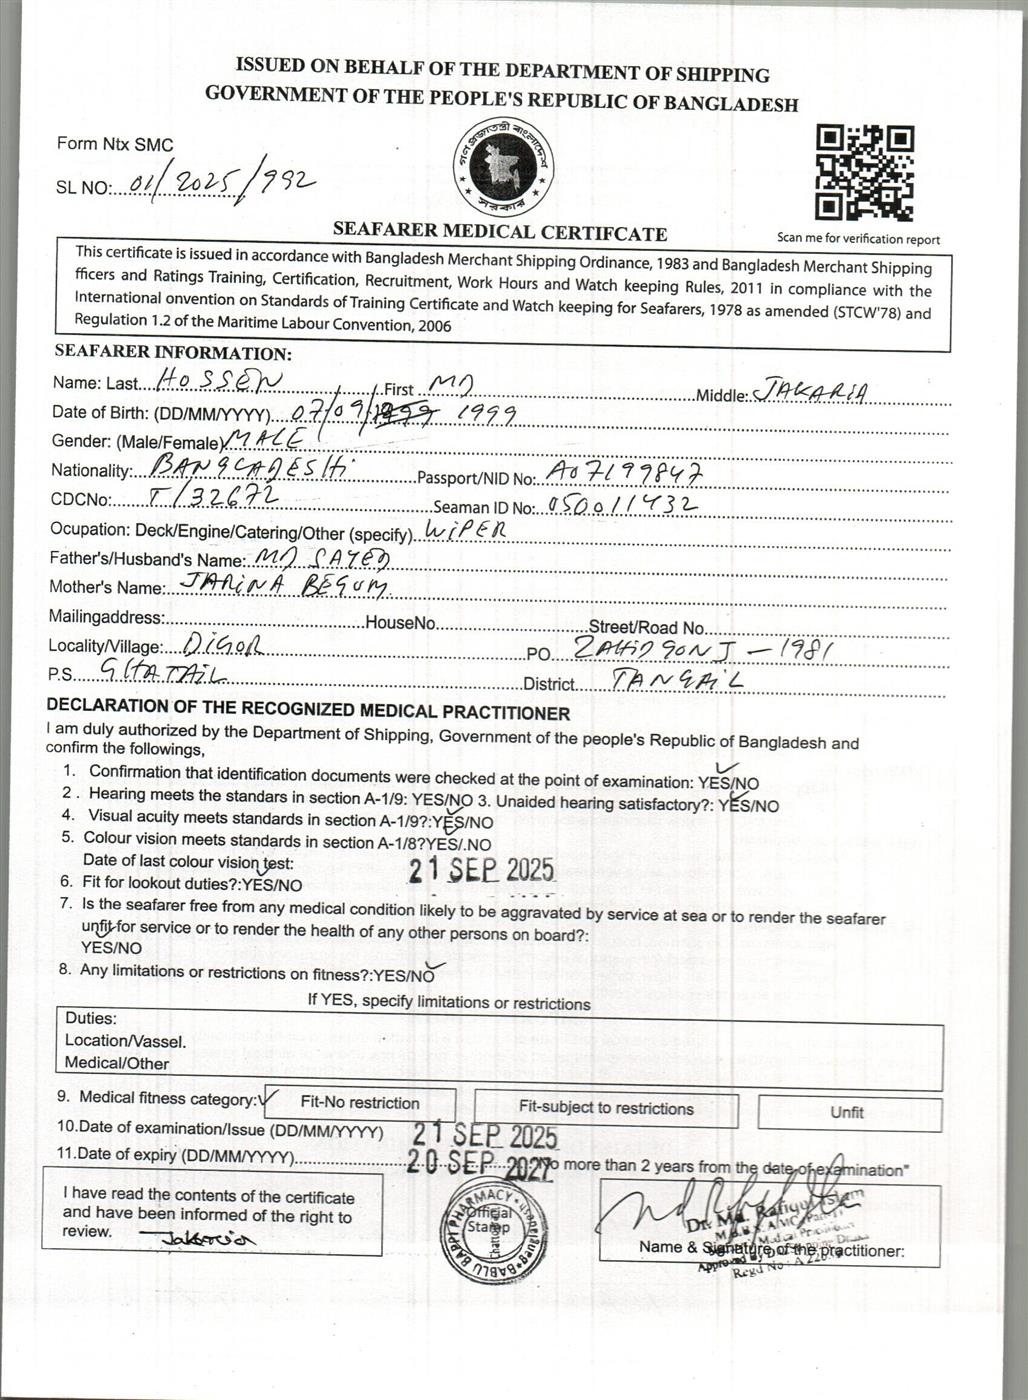 ISSUED ON BEHALF OF THE DEPARTMENT OF SHIPPING
GOVERNMENT OF THE PEOPLE'S REPUBLIC OF BANGLADESH
Form Ntx SMC
SL NO:...01/2025/992
গণপ্রজাতন্ত্রী বাংলাদেশ
সরকার
Scan me for verification report
SEAFARER MEDICAL CERTIFCATE
This certificate is issued in accordance with Bangladesh Merchant Shipping Ordinance, 1983 and Bangladesh Merchant Shipping
fficers and Ratings Training, Certification, Recruitment, Work Hours and Watch keeping Rules, 2011 in compliance with the
International onvention on Standards of Training Certificate and Watch keeping for Seafarers, 1978 as amended (STCW'78) and
Regulation 1.2 of the Maritime Labour Convention, 2006
SEAFARER INFORMATION:
Name: Last...HOSSEN First MD Middle: JAKARIA
Date of Birth: (DD/MM/YYYY)...07/09/1999 1999
Gender: (Male/Female) MALE
Nationality: BANGLADESHi Passport/NID No: A07199847
CDCNo: T/32672 Seaman ID No: 050011432
Ocupation: Deck/Engine/Catering/Other (specify) WiPER
Father's/Husband's Name: MD SAYED
Mother's Name: JARiNA BEGUM
Mailingaddress: HouseNo Street/Road No
Locality/Village: DiGOR PO ZAHIDGONJ - 1981
P.S. GHATAiL District TANGAiL
DECLARATION OF THE RECOGNIZED MEDICAL PRACTITIONER
I am duly authorized by the Department of Shipping, Government of the people's Republic of Bangladesh and
confirm the followings,
1. Confirmation that identification documents were checked at the point of examination: YES/NO
2 . Hearing meets the standars in section A-1/9: YES/NO 3. Unaided hearing satisfactory?: YES/NO
4. Visual acuity meets standards in section A-1/9?:YES/NO
5. Colour vision meets standards in section A-1/8?YES/.NO
Date of last colour vision test: 21 SEP 2025
6. Fit for lookout duties?:YES/NO
7. Is the seafarer free from any medical condition likely to be aggravated by service at sea or to render the seafarer
unfit for service or to render the health of any other persons on board?:
YES/NO
8. Any limitations or restrictions on fitness?:YES/NO
If YES, specify limitations or restrictions
Duties:
Location/Vassel.
Medical/Other
9. Medical fitness category: Fit-No restriction Fit-subject to restrictions Unfit
10.Date of examination/Issue (DD/MM/YYYY) 21 SEP 2025
11.Date of expiry (DD/MM/YYYY) 20 SEP 2027 No more than 2 years from the date of examination"
I have read the contents of the certificate
and have been informed of the right to
review. Jakaria
BABLU BABI PHARMACY Bangladesh
Official
Stamp
Dr. Md. Rafiqul Islam
Name & Signature of the practitioner:
Approved by
Regd No : A